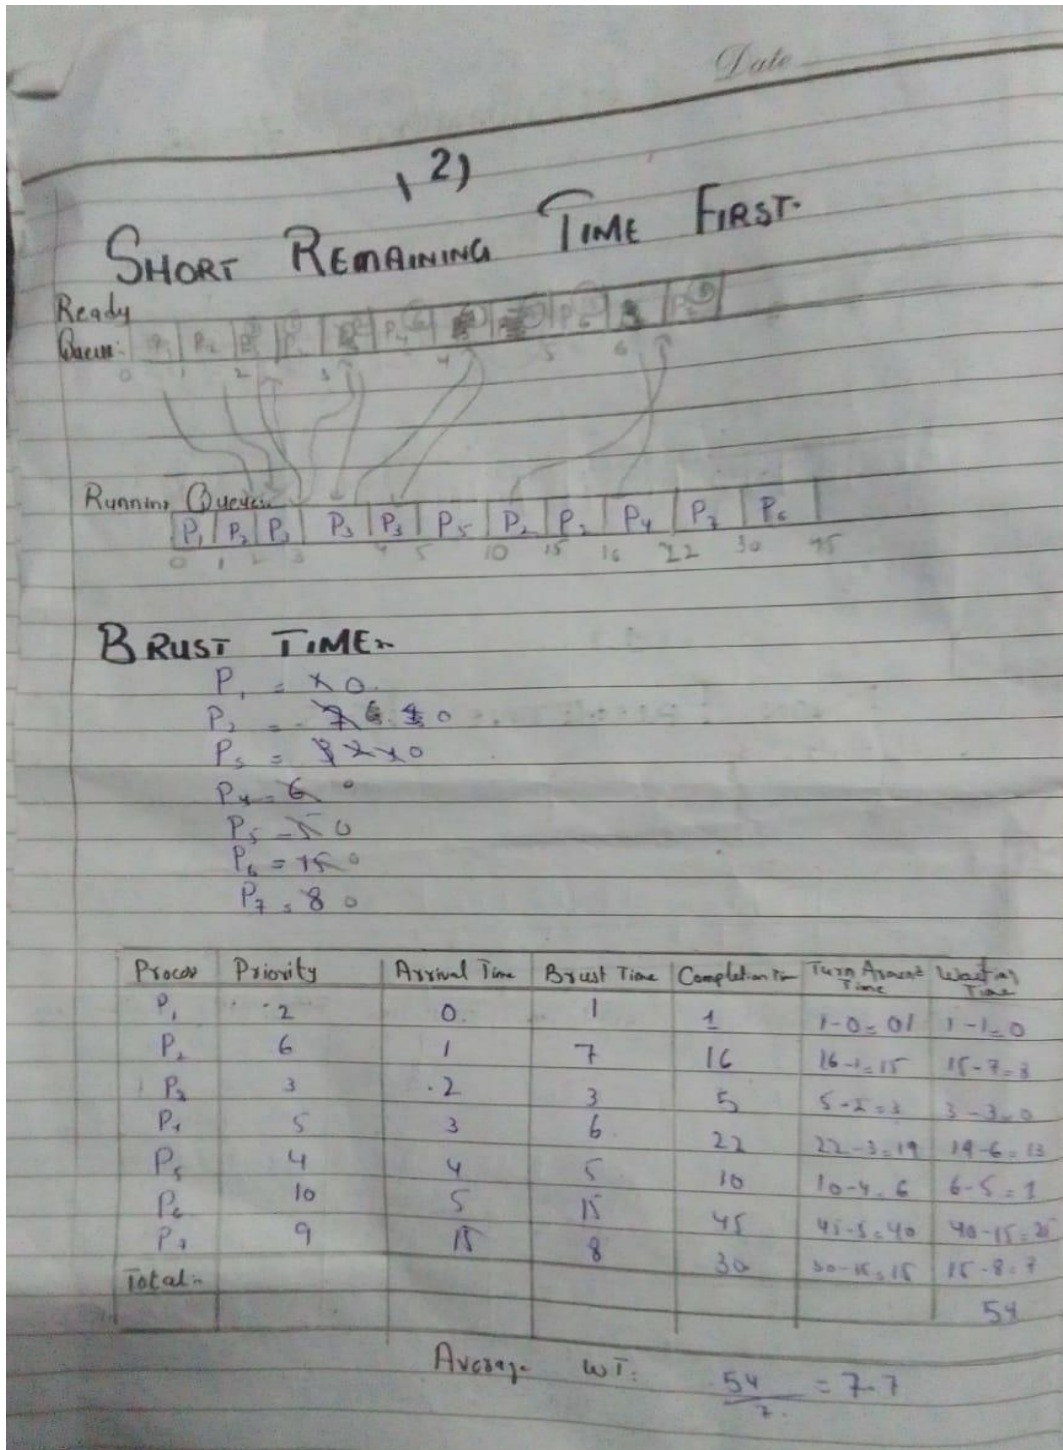 Date
1 2)
SHORT REMAINING TIME FIRST.
Ready
Queue:
0 1 2 3 4 5 6
Running Queue:
P1 P2 P3 P3 P3 P5 P2 P2 P4 P7 P6
0 1 2 3 4 5 10 15 16 22 30 45
BRUST TIME:-
P1 = 0
P2 = 7 6 1 0
P3 = 3 2 1 0
P4 = 6 0
P5 = 5 0
P6 = 15 0
P7 = 8 0
Proces Priority Arrival Time Brust Time Completion Time Turn Around Time Waiting Time
P1 2 0 1 1 1-0=01 1-1=0
P2 6 1 7 16 16-1=15 15-7=8
P3 3 2 3 5 5-2=3 3-3=0
P4 5 3 6 22 22-3=19 19-6=13
P5 4 4 5 10 10-4=6 6-5=1
P6 10 5 15 45 45-5=40 40-15=25
P7 9 15 8 30 30-15=15 15-8=7
Total:-
54
Average WT: 54/7 = 7.7